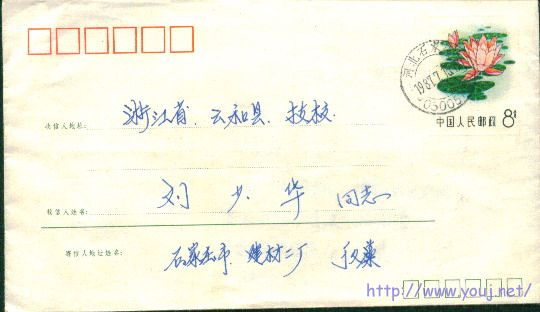 河北石家
1987.7
05005
中国人民邮政 8分
收信人地址:
浙江省 云和县 技校
收信人姓名:
刘少华 同志
寄信人地址姓名:
石家庄市 建材二厂
http://www.youj.net/